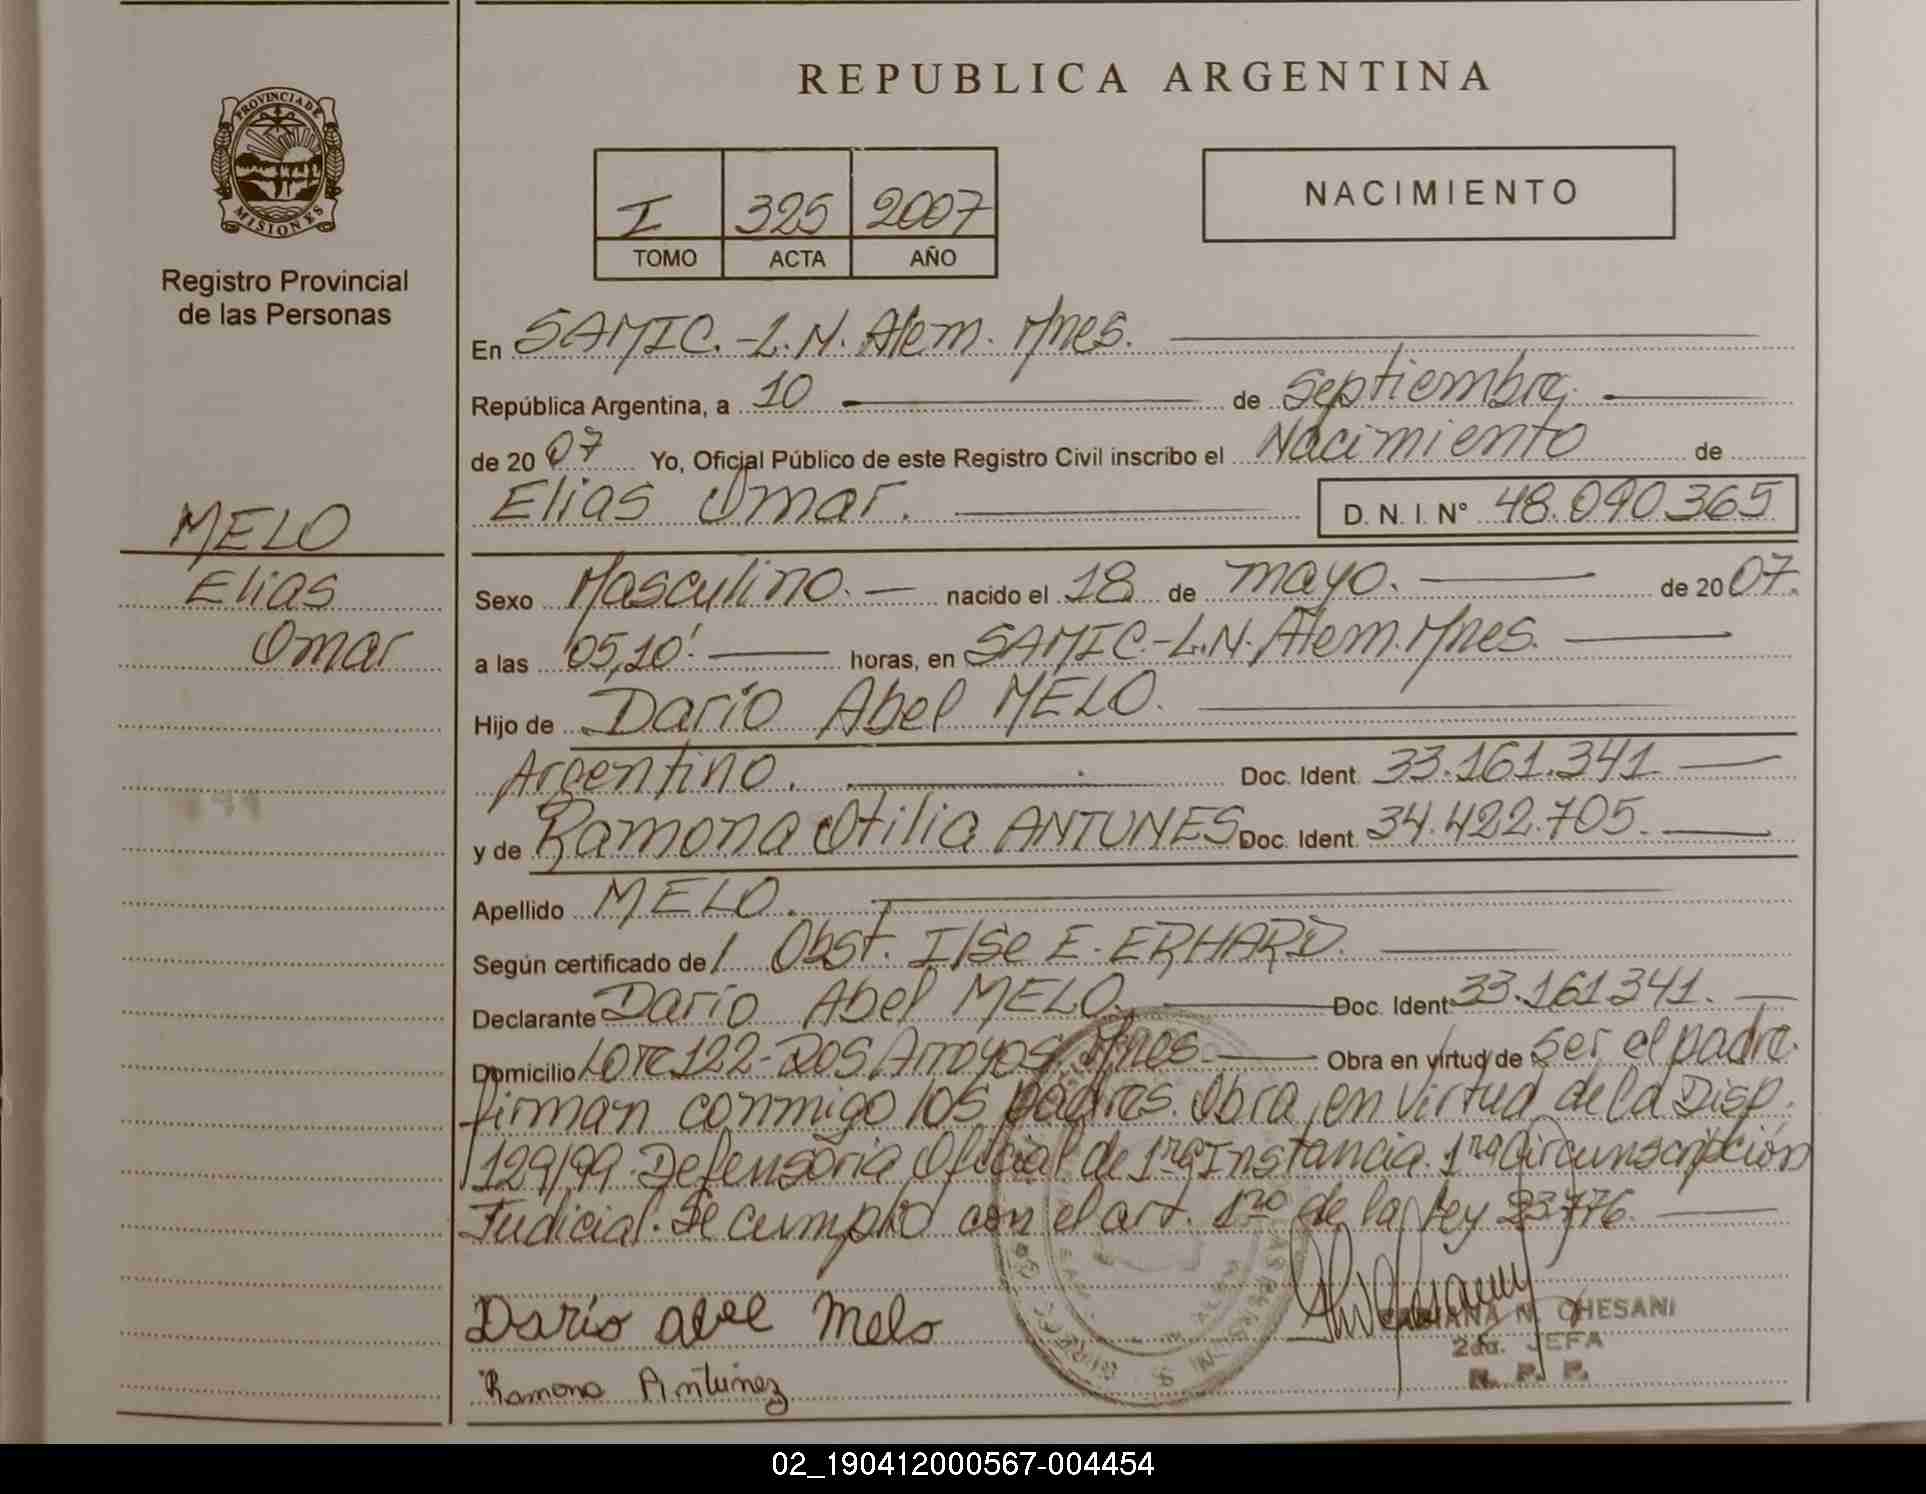 REPUBLICA ARGENTINA
PROVINCIA DE
MISIONES
Registro Provincial
de las Personas
I 325 2007
TOMO ACTA AÑO
NACIMIENTO
En SAMIC.-L.N. Alem. Mnes.
República Argentina, a 10 de Septiembre
de 2007 Yo, Oficial Público de este Registro Civil inscribo el Nacimiento de
Elias Omar. D. N. I. N° 48.090.365
MELO
Elias
Omar
Sexo Masculino. nacido el 18 de mayo. de 2007.
a las 05,10' horas, en SAMIC-L.N. Alem. Mnes.
Hijo de Darío Abel MELO.
Argentino. Doc. Ident. 33.161.341
y de Ramona Otilia ANTUNES Doc. Ident. 34.422.705.
Apellido MELO.
Según certificado de Obst. Ilse E. ERHARD.
Declarante Darío Abel MELO. Doc. Ident 33.161341.
Domicilio Lote 122-Dos Arroyos. Mnes. Obra en virtud de ser el padre.
firman conmigo los padres. Obra en virtud de la Disp.
129/99. Defensoria Oficial de 1ra Instancia. 1ra Circunscripción
Judicial. Se cumplio con el art. 1ro de la Ley 23776.
Darío abel Melo
Ramona Antunez
N. CHESANI
2da. JEFA
R. P. P.
02_190412000567-004454